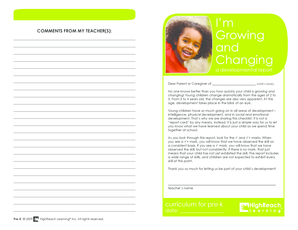 COMMENTS FROM MY TEACHER(S):
Pre-K © 2010 HighReach Learning® Inc. All rights reserved.
I'm
Growing
and
Changing
Dear Parent or Caregiver of
No one knows better than you how quickly your child is growing and
changing! Young children change dramatically from the ages of 2 to
3, from 3 to 4 years old; the changes are also very apparent. At this
age, development takes place in the blink of an eye.
Young children have so much going on in all areas of development –
intelligence, physical development, and in social and emotional
development. That's why we are sharing this checklist. It is not a
"report card" by any means; instead, it is just a simple way for us to let
you know what we have learned about your child as we spend time
together at school.
As you look through this report, look for the
you will know that we have observed the skill on
a consistent basis. If you see a
observed the skill but not consistently. If there is no mark, that just
means that your child has not yet exhibited this skill. This report includes
a wide range of skills, and children are not expected to exhibit every
skill at this point.
Thank you so much for letting us be part of your child's development!
Teacher's name
curriculum for pre-k
date
HighReach
Learning